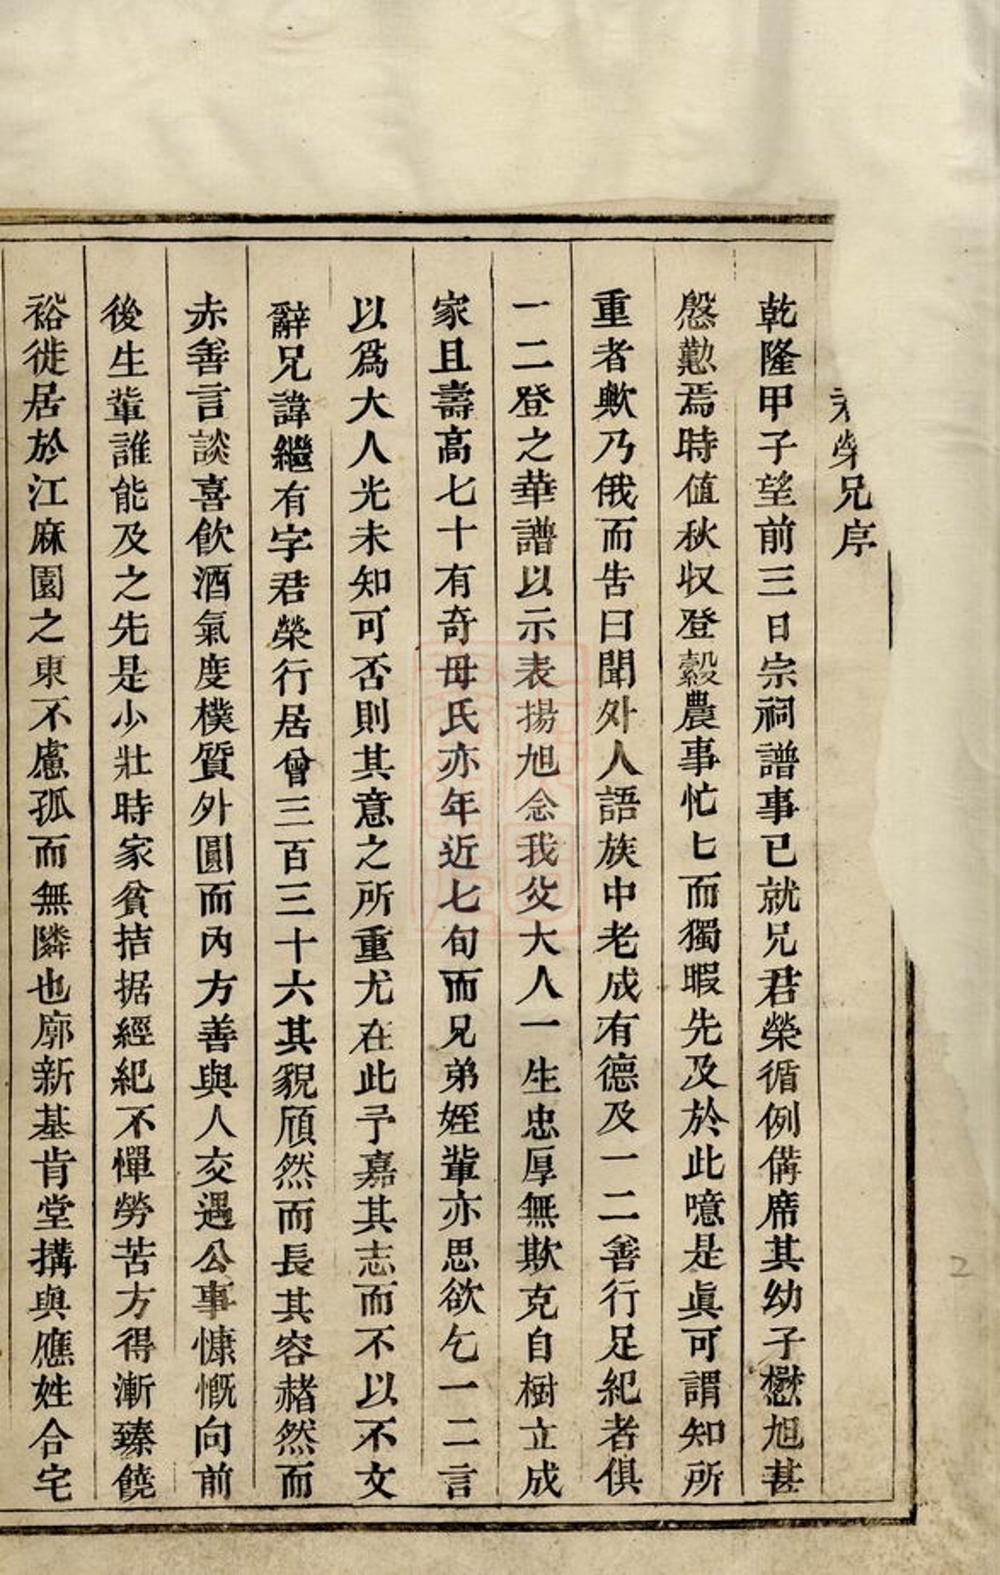 榮兄序
乾隆甲子望前三日宗祠譜事已就兄君榮循例備席其幼子懋旭甚
慇懃焉時值秋収登穀農事忙匕而獨暇先及於此噫是眞可謂知所
重者歟乃俄而告曰聞外人語族中老成有德及一二善行足紀者俱
一二登之華譜以示表揚旭念我父大人一生忠厚無欺克自樹立成
家且壽高七十有奇母氏亦年近七旬而兄弟姪輩亦思欲乞一二言
以爲大人光未知可否則其意之所重尤在此予嘉其志而不以不文
辭兄諱繼有字君榮行居曾三百三十六其貌頎然而長其容赭然而
赤善言談喜飲酒氣度樸質外圓而內方善與人交遇公事慷慨向前
後生輩誰能及之先是少壯時家貧拮据經紀不憚勞苦方得漸臻饒
裕徙居於江麻園之東不慮孤而無隣也廓新基肯堂搆與應姓合宅
2